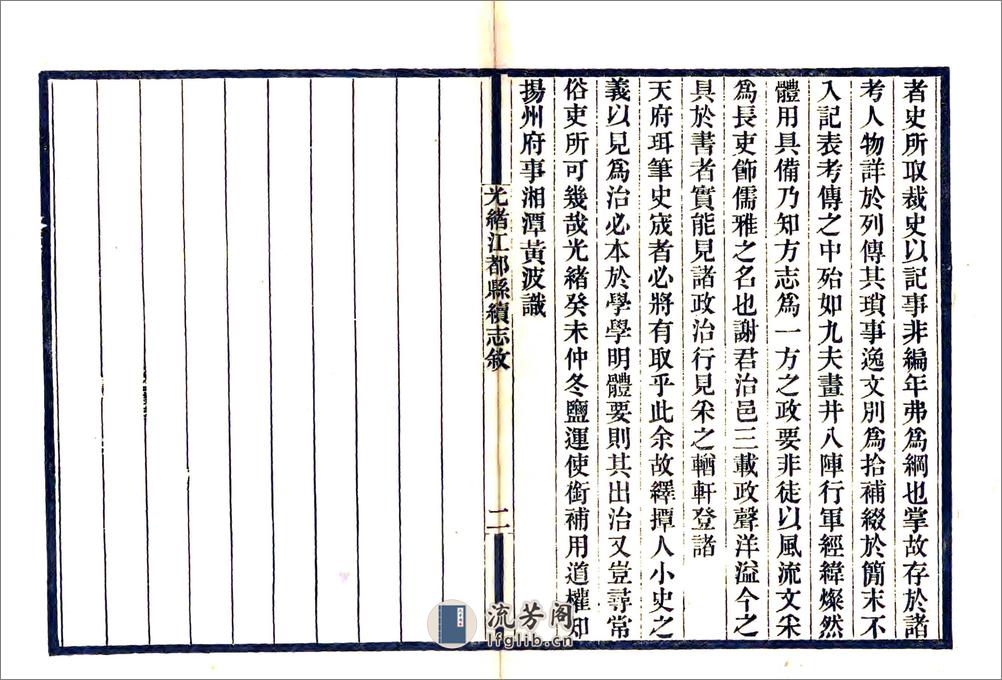 者史所取裁史以記事非編年弗爲綱也掌故存於諸
考人物詳於列傳其瑣事逸文別爲拾補綴於簡末不
入記表考傳之中殆如九夫畫井八陣行軍經緯燦然
體用具備乃知方志爲一方之政要非徒以風流文采
爲長吏飾儒雅之名也謝君治邑三載政聲洋溢今之
具於書者實能見諸政治行見采之輶軒登諸
天府珥筆史宬者必將有取乎此余故繹撢人小史之
義以見爲治必本於學學明體要則其出治又豈尋常
俗吏所可幾哉光緒癸未仲冬鹽運使銜補用道權知
揚州府事湘潭黃波識
光緒江都縣續志敘
二
流芳阁
lfglib.cn